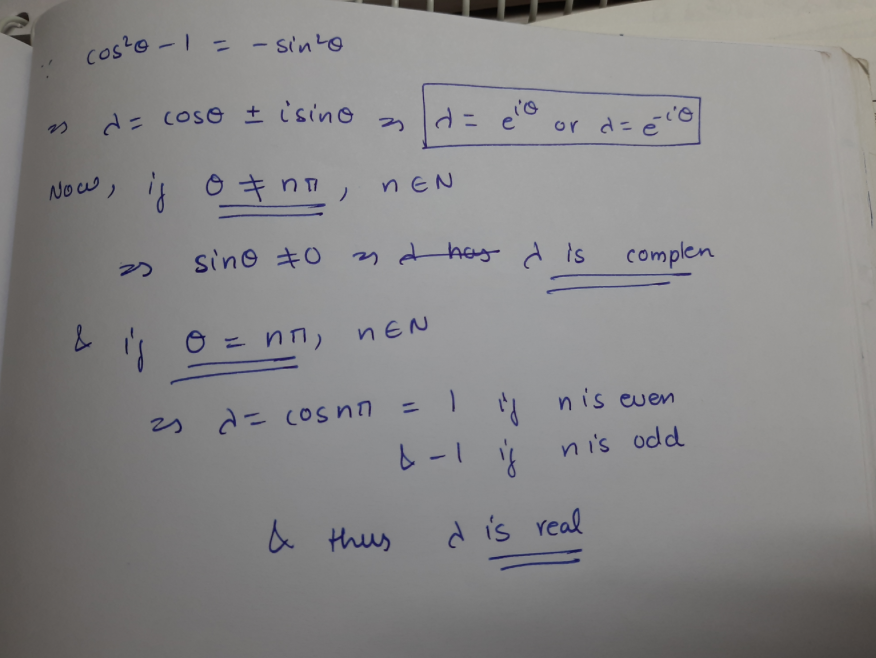 ∵ cos²θ - 1 = - sin²θ
⇒ λ = cosθ ± i sinθ ⇒ λ = e^{iθ} or λ = e^{-iθ}
Now, if θ ≠ nπ, n ∈ N
⇒ sinθ ≠ 0 ⇒ λ has λ is complex
& if θ = nπ, n ∈ N
⇒ λ = cos nπ = 1 if n is even
& -1 if n is odd
& thus λ is real